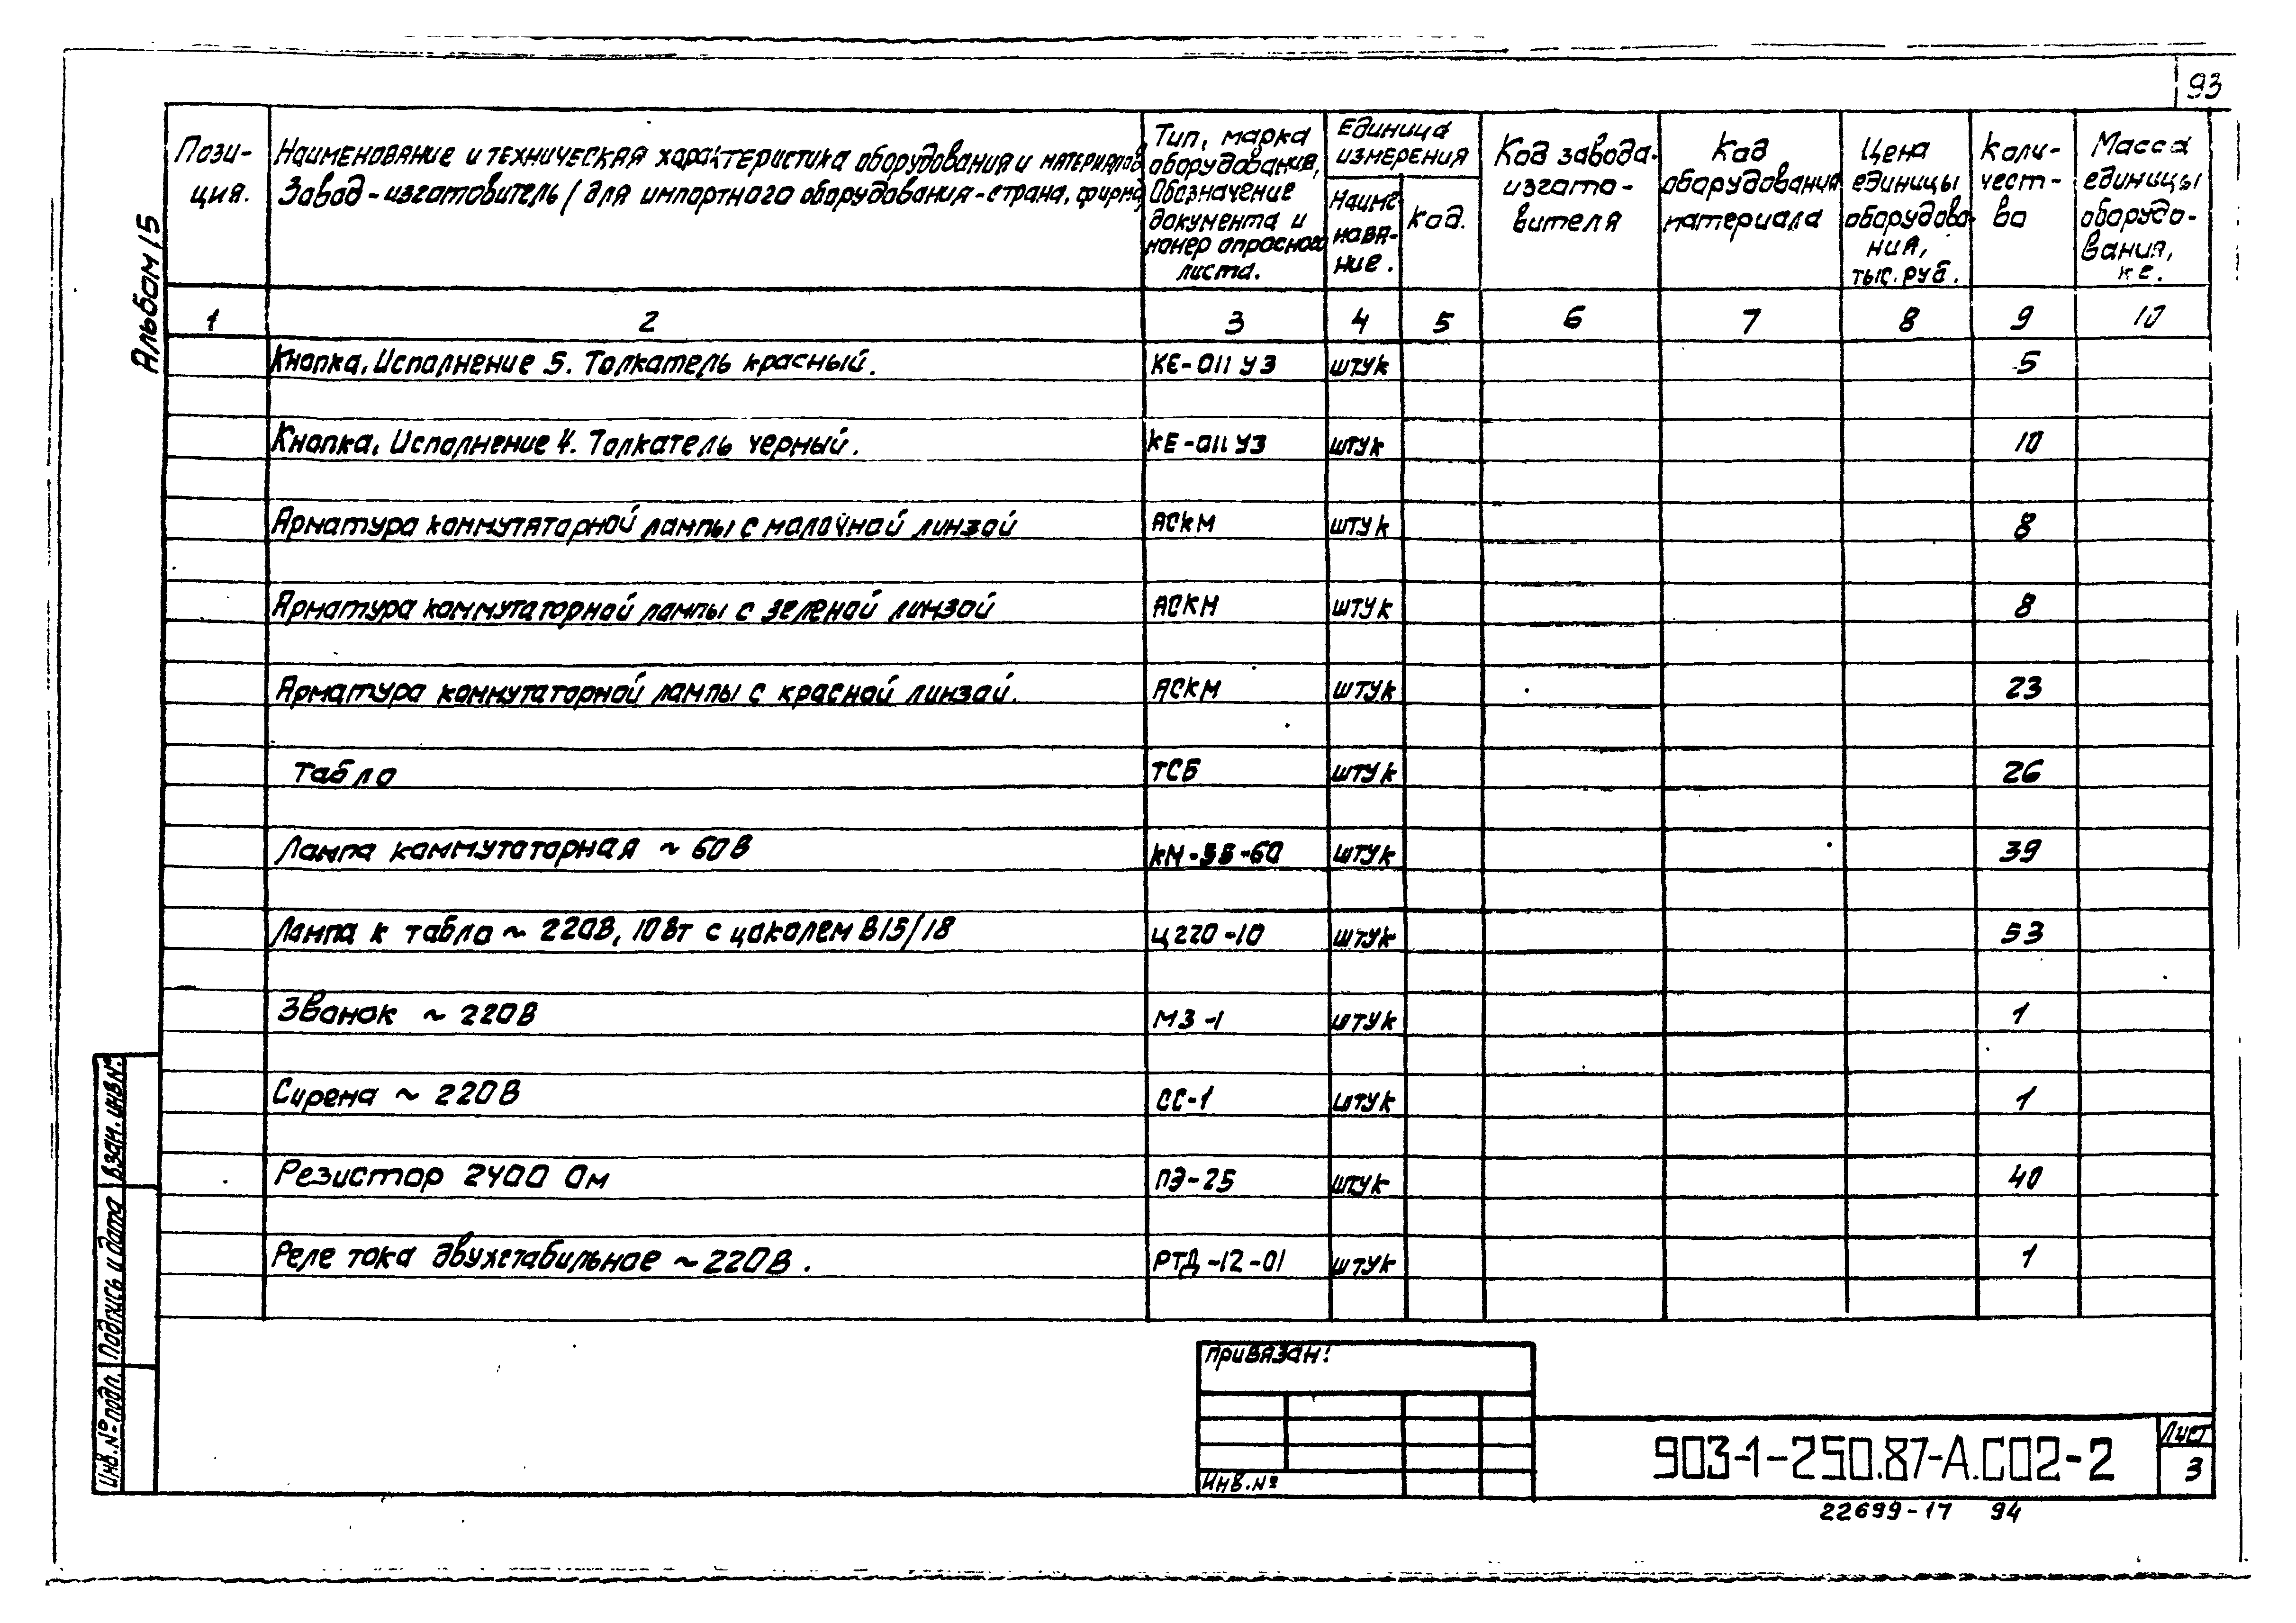 93
Альбом 15
Пози-
ция.
Наименование и техническая характеристика оборудования и материалов
Завод-изготовитель / для импортного оборудования-страна, фирма
Тип, марка
оборудования,
Обозначение
документа и
номер опросного
листа.
Единица
измерения
Наиме-
нова-
ние.
код.
Код завода-
изгото-
вителя
Код
оборудования
материала
Цена
единицы
оборудова-
ния,
тыс. руб.
Коли-
чест-
во
Масса
единицы
оборудо-
вания,
кг.
1 2 3 4 5 6 7 8 9 10
Кнопка. Исполнение 5. Толкатель красный. КЕ-011 У3 штук 5
Кнопка. Исполнение 4. Толкатель черный. КЕ-011 У3 штук 10
Арматура коммутаторной лампы с молочной линзой АСКМ штук 8
Арматура коммутаторной лампы с зеленой линзой АСКМ штук 8
Арматура коммутаторной лампы с красной линзой. АСКМ штук 23
Табло ТСБ штук 26
Лампа коммутаторная ~ 60В штук 39
Лампа к табло ~ 220В, 10Вт с цоколем В15/18 Ц220-10 штук 53
Звонок ~ 220В МЗ-1 штук 1
Сирена ~ 220В СС-1 штук 1
Резистор 2400 Ом ПЭ-25 штук 40
Реле тока двухстабильное ~ 220В. РТД-12-01 штук 1
Инв.№ подл. Подпись и дата Взам. инв№
Привязан:
Инв.№
903-1-250.87-А.СО2-2
Лист
3
22699-17 94